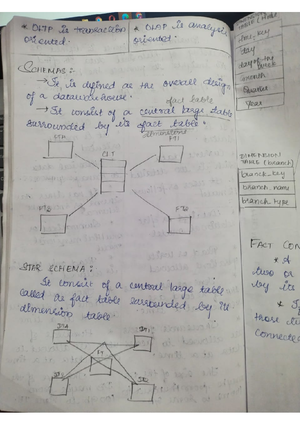 * OLTP is transaction oriented.
* OLAP is analysis oriented.
SCHEMAS:
→ It is defined as the overall design
of a datawarehouse.
fact table
→ It consist of a central large table
surrounded by its fact table.
dimensions
FT1
FT2
STAR SCHEMA:
It consist of a central large table
called as fact table surrounded by its
dimension table.
FT
day
month
Quarter
Year
DIMENSION
TABLE (branch)
branch_key
branch_name
branch_type
FACT CON
* A
two or
by its
those is
connecte